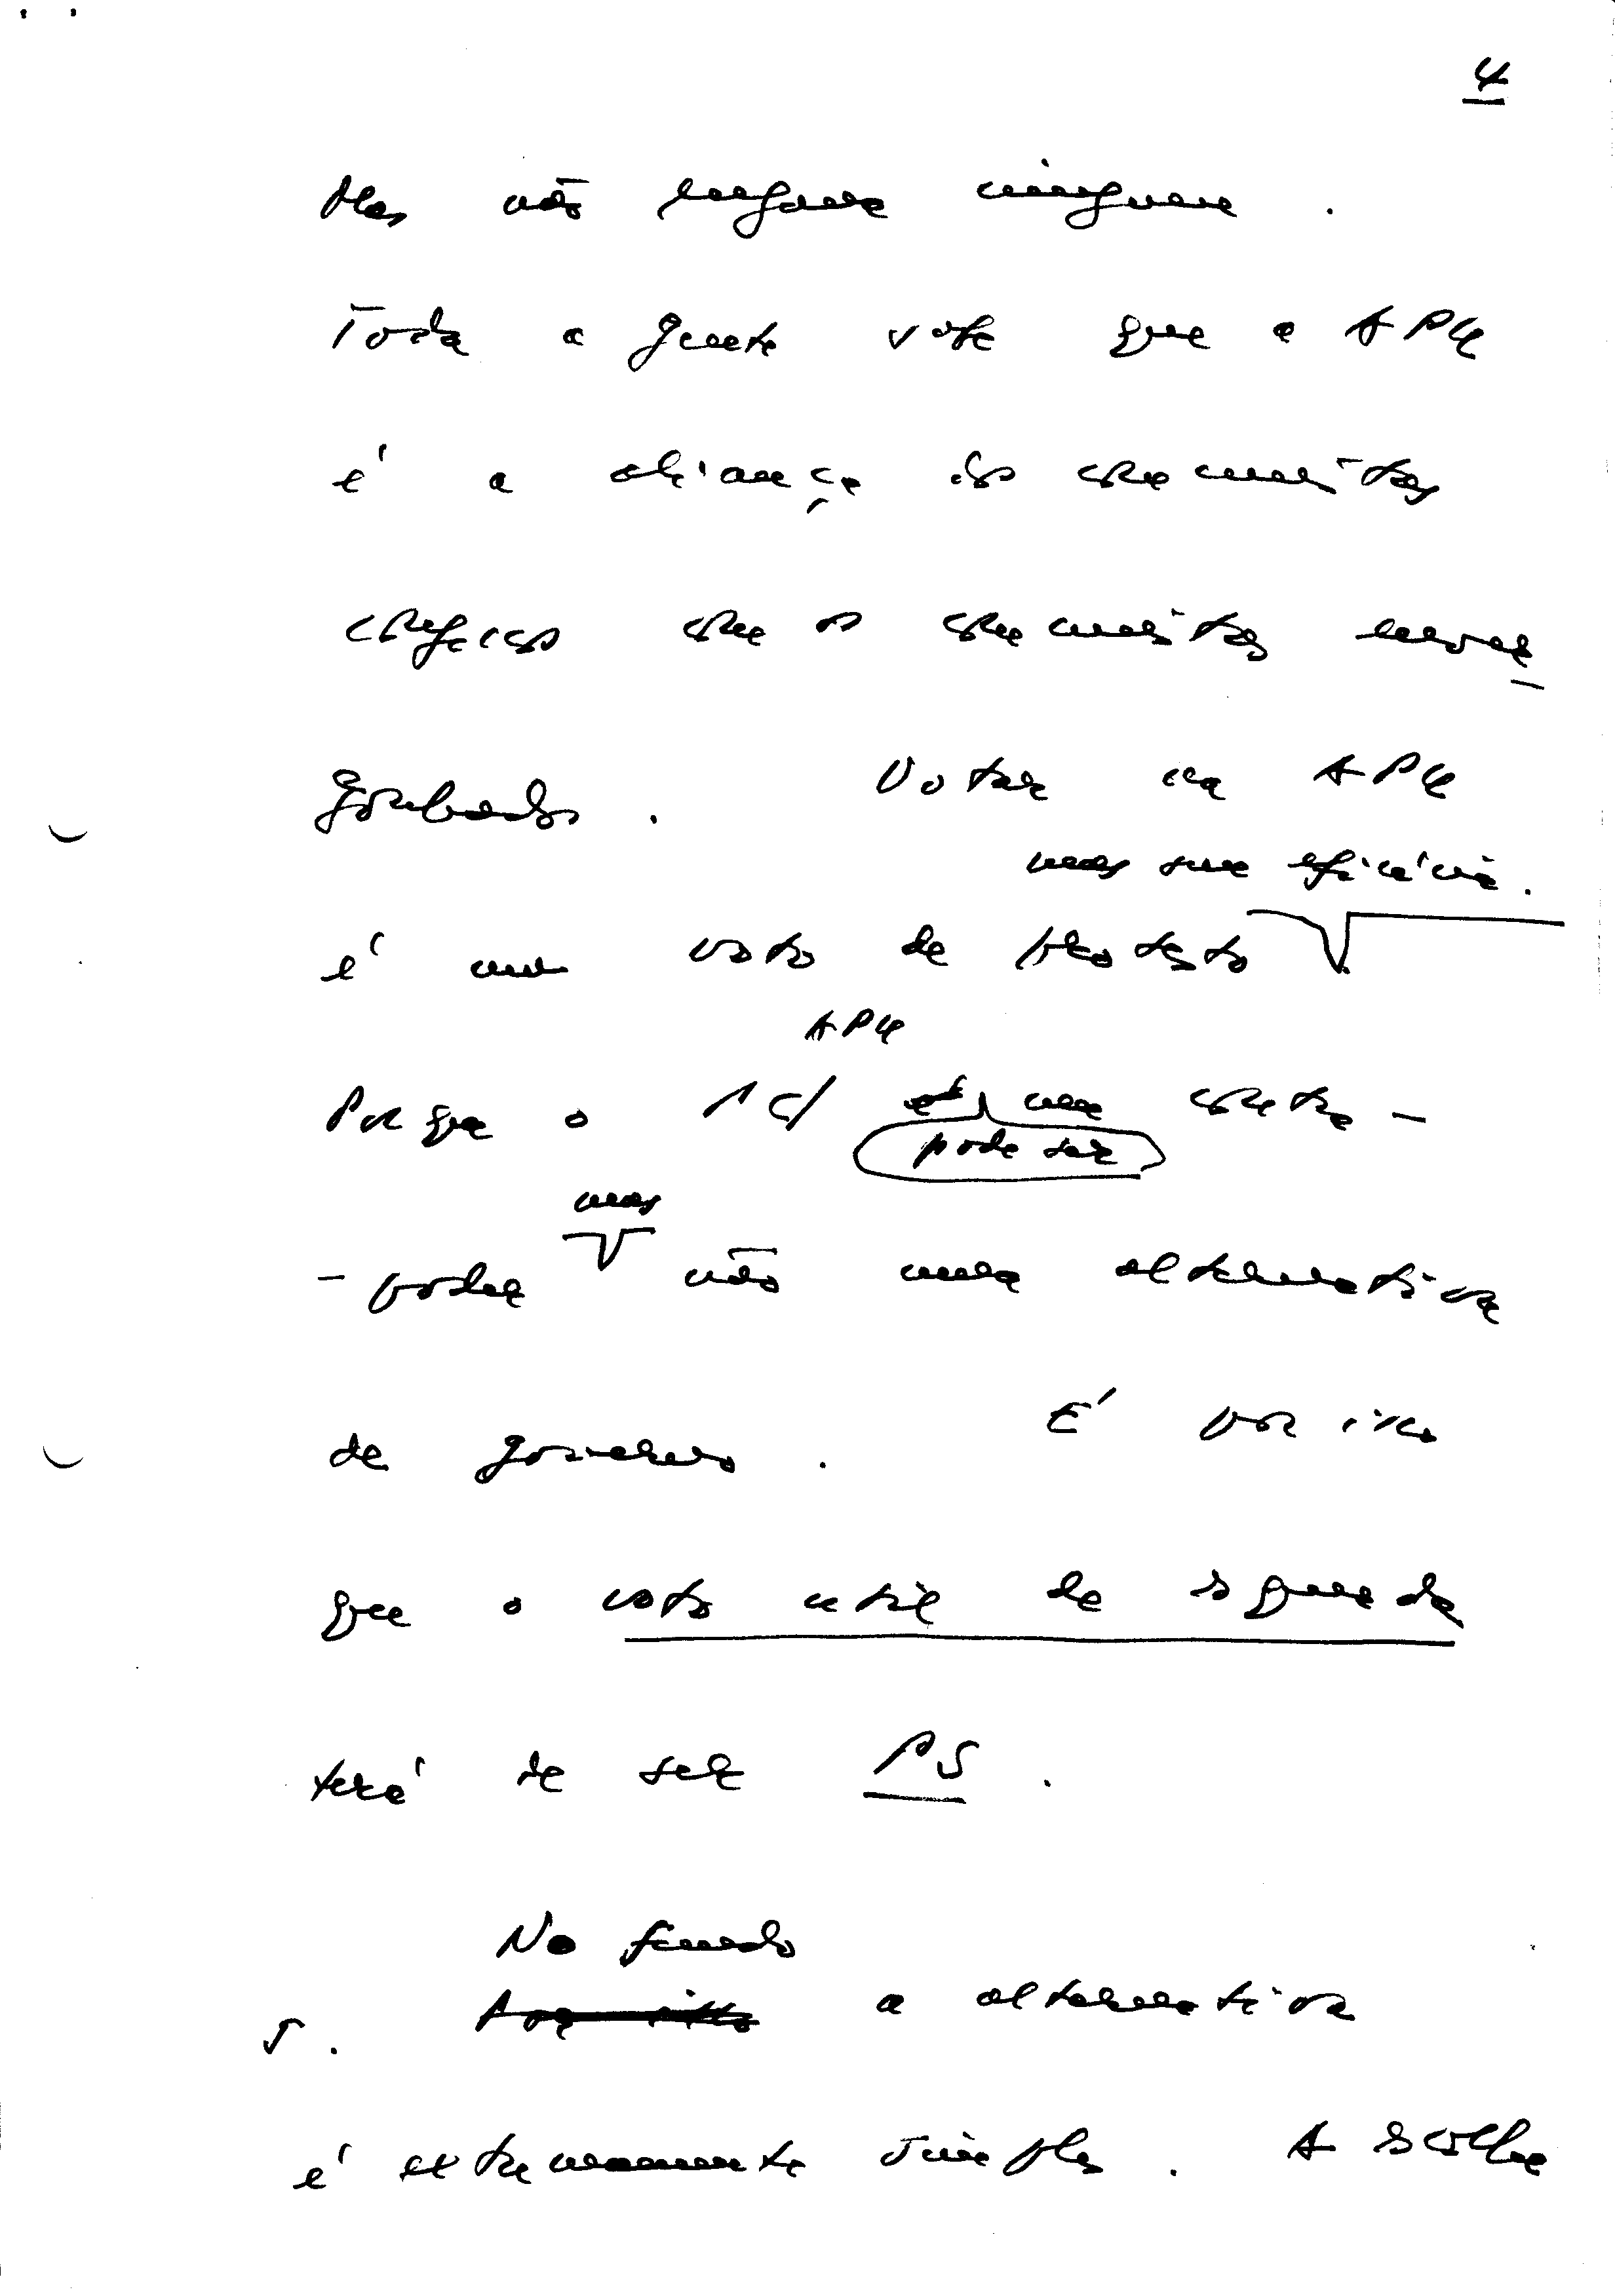 4
Mas não enganam ninguém.
Toda a gente sabe que a APU
é a aliança dos comunistas
consigo com os comunistas
. Votar na APU
mas sem eficácia.
é um voto de protesto
APU
Porque o PC/ é um contra-
pode ser
mas
-poder não uma alternativa
de governo. É por isso
que o voto útil de esquerda
terá de ser PS.
No fundo
5. a alternativa
é extremamente simples. A escolha